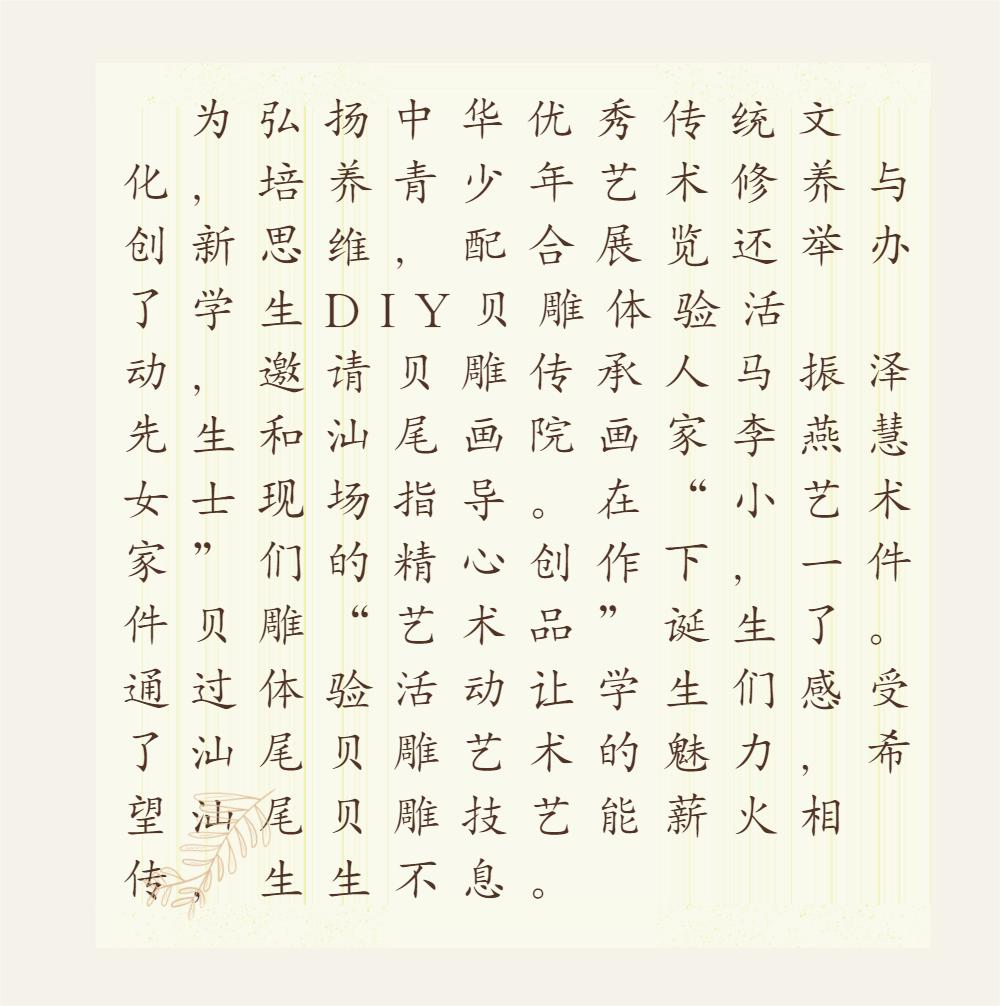 为弘扬中华优秀传统文
化，培养青少年艺术修养与
创新思维，配合展览还举办
了学生DIY贝雕体验活
动，邀请贝雕传承人马振泽
先生和汕尾画院画家李燕慧
女士现场指导。在“小艺术
家”们的精心创作下，一件
件贝雕“艺术品”诞生了。
通过体验活动让学生们感受
了汕尾贝雕艺术的魅力，希
望汕尾贝雕技艺能薪火相
传，生生不息。